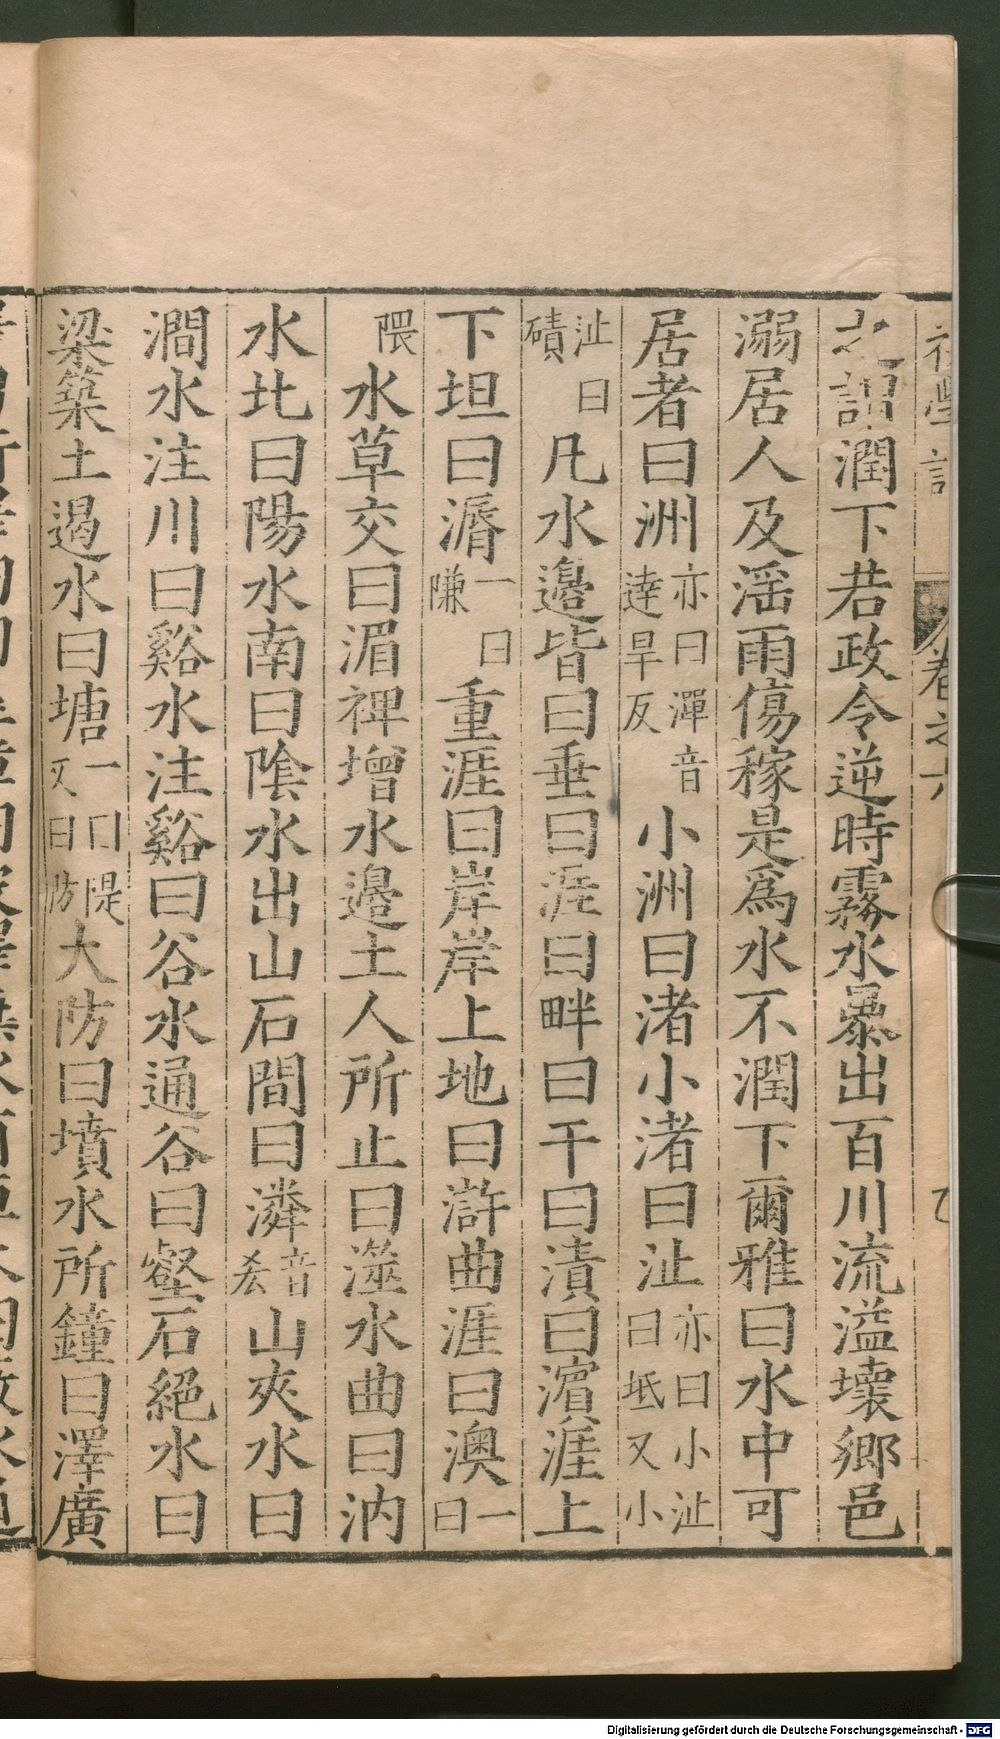 初學記 卷之六 七
北謂潤下若政令逆時霧水㬥出百川流溢壞鄉邑
溺居人及滛雨傷稼是爲水不潤下爾雅曰水中可
居者曰洲亦曰潬音達旱反小洲曰渚小渚曰沚亦曰小沚曰坻又小
沚曰磧凡水邉皆曰垂曰涯曰畔曰干曰漬曰濵涯上
下坦曰漘一曰隒重涯曰岸岸上地曰滸曲涯曰澳一曰
隈水草交曰湄裨增水邉土人所止曰澨水曲曰汭
水北曰陽水南曰隂水出山石間曰潾音㷠山夾水曰
澗水注川曰谿水注谿曰谷水通谷曰壑石絕水曰
梁築土遏水曰塘一曰隄又曰防大防曰墳水所鐘曰澤廣
Digitalisierung gefördert durch die Deutsche Forschungsgemeinschaft - DFG